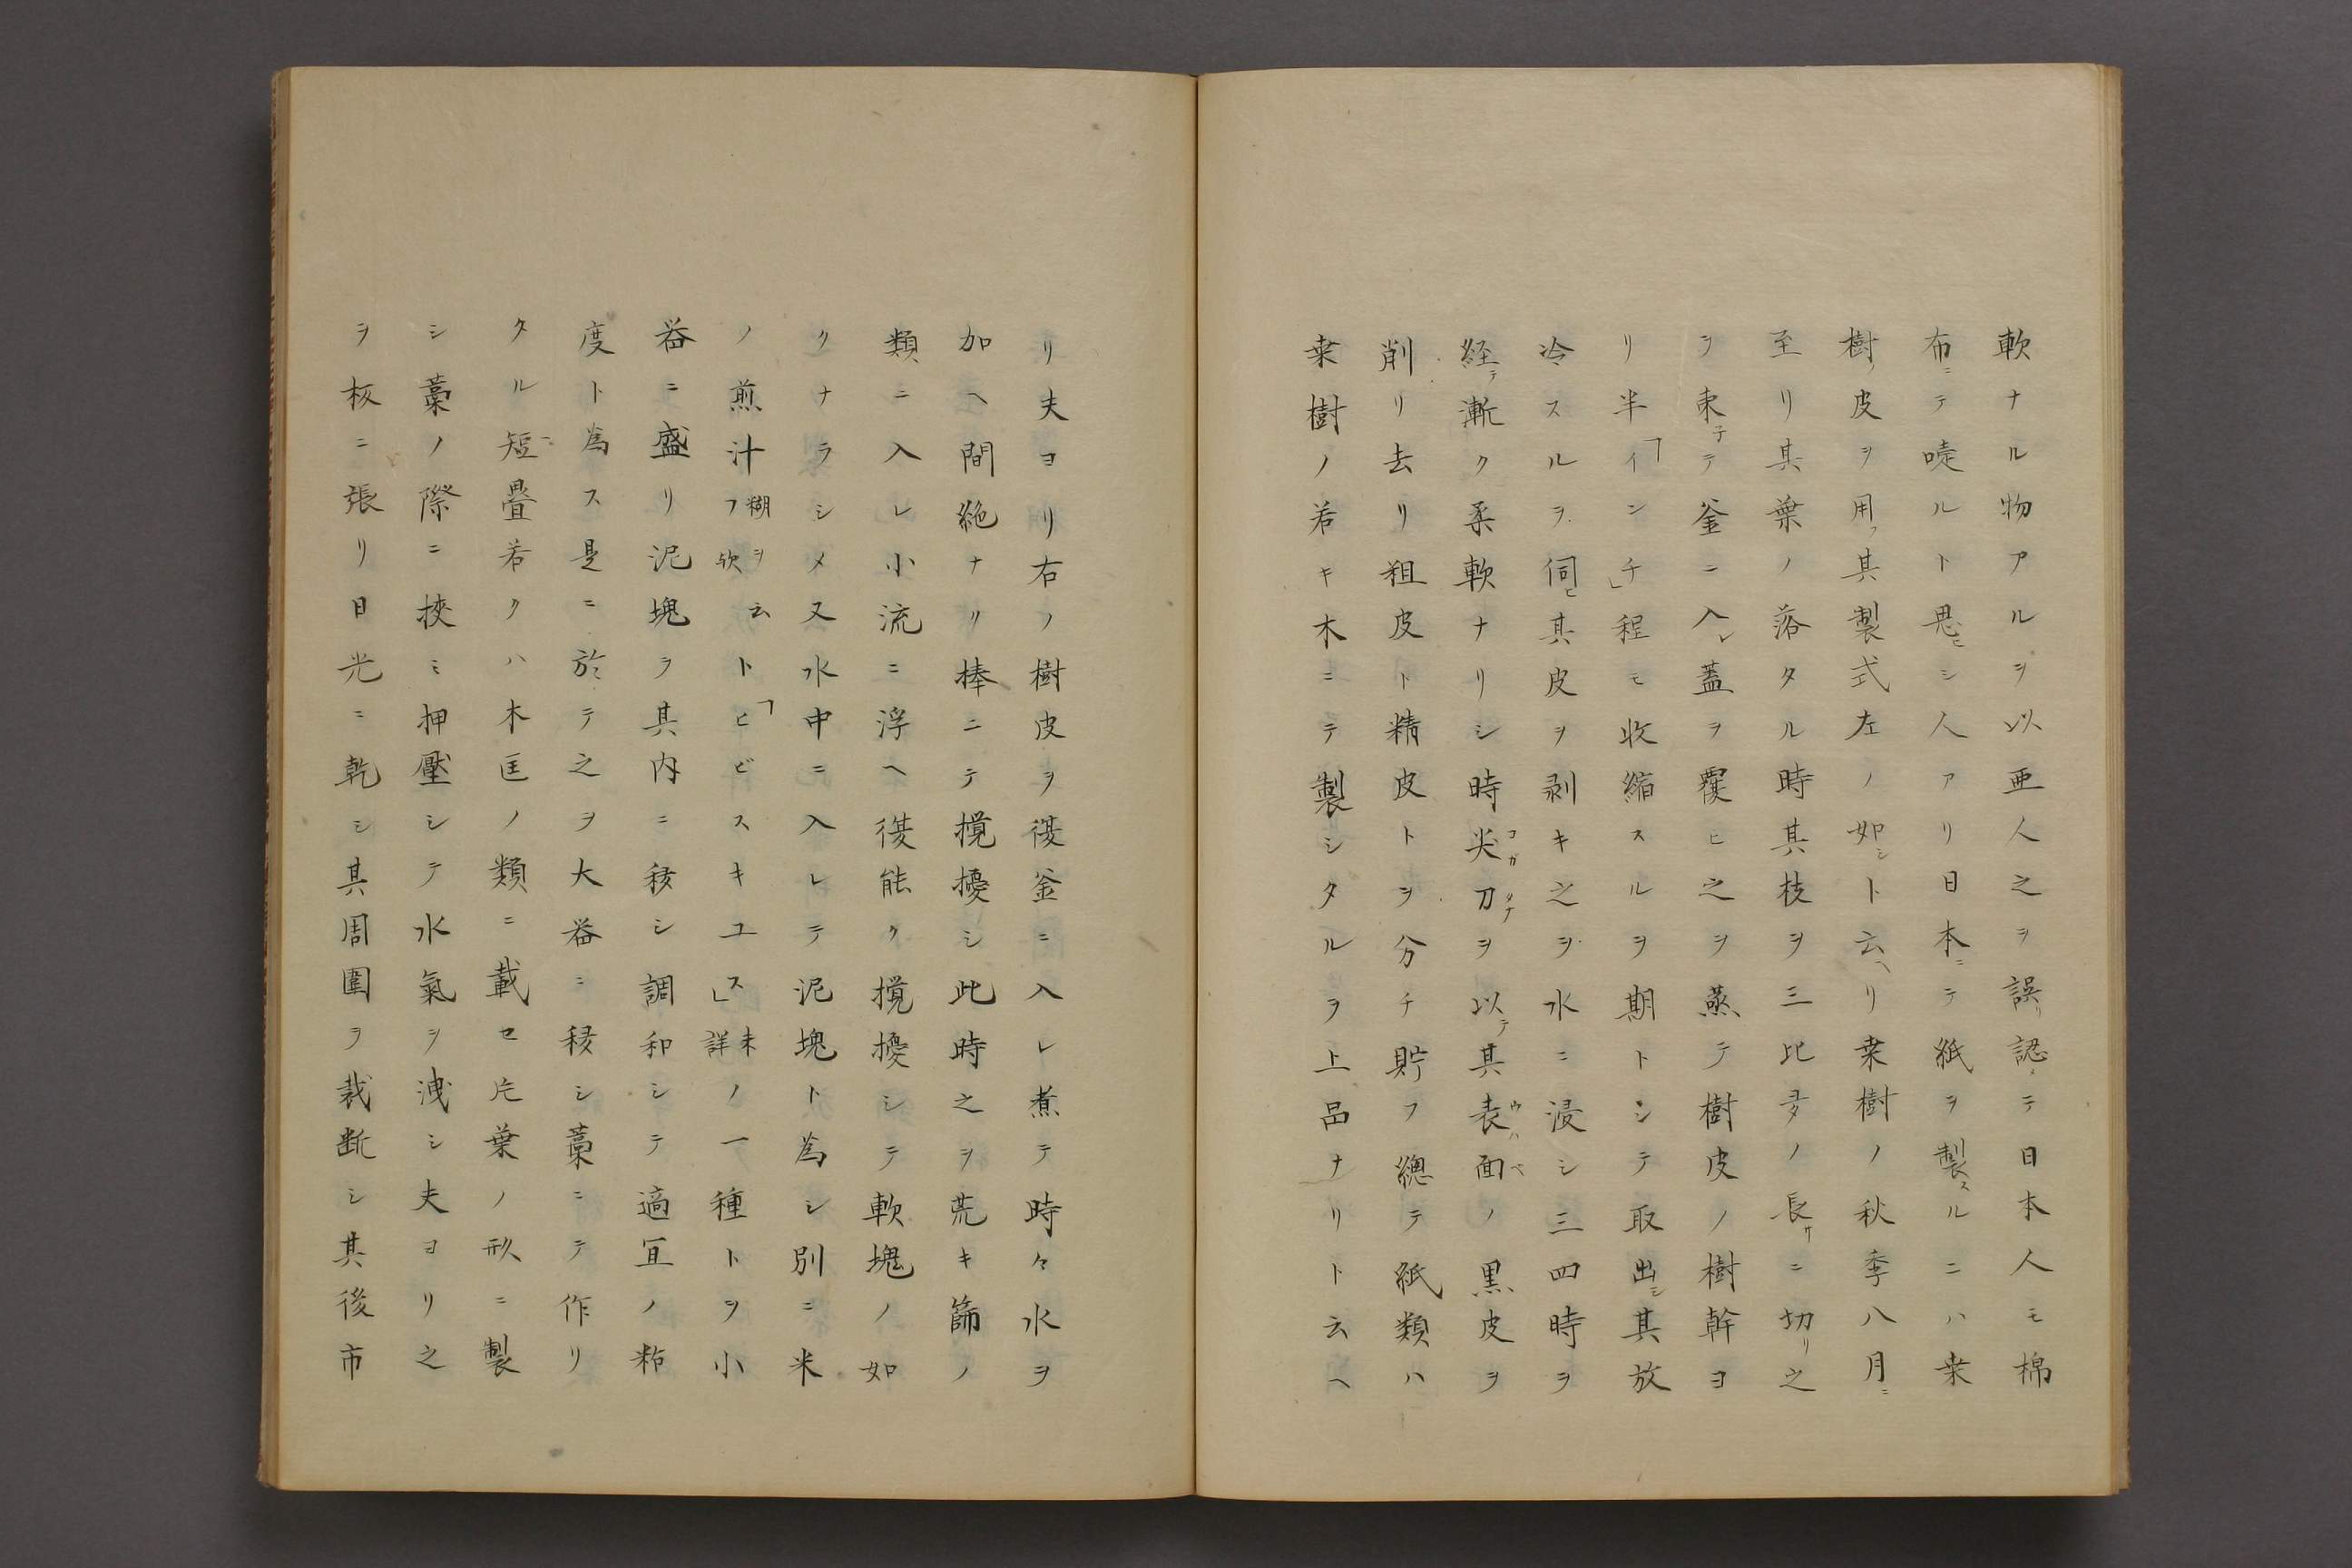 軟ナル物アルヲ以亜人之ヲ誤リ認メテ日本人モ棉
布ニテ嚏ルト思ヒシ人アリ日本ニテ紙ヲ製スルニハ桒
樹ノ皮ヲ用フ其製式左ノ如シト云ヘリ桒樹ノ秋季八月ニ
至リ其葉ノ落タル時其枝ヲ三比ヲタノ長サニ切リ之
ヲ束子テ釜ニ入レ蓋ヲ覆ヒ之ヲ蒸テ樹皮ノ樹幹ヨ
リ半「インチ」程モ收縮スルヲ期トシテ取出シ其放
冷スルヲ伺ヒ其皮ヲ剥キ之ヲ水ニ浸シ三四時ヲ
経テ漸ク柔軟ナリシ時尖刀コガタナヲ以テ其表面ウハベノ黒皮ヲ
削リ去リ粗皮ト精皮トヲ分チ貯フ總テ紙類ハ
桒樹ノ若キ木ニテ製シタルヲ上品ナリト云ヘ
リ夫ヨリ右ノ樹皮ヲ復釜ニ入レ煮テ時々水ヲ
加ヘ間絶ナリ棒ニテ攪擾シ此時之ヲ荒キ篩ノ
類ニ入レ小流ニ浮ヘ復能ク攪擾シテ軟塊ノ如
クナラシメ又水中ニ入レテ泥塊ト為シ別ニ米
ノ煎汁糊ヲ云フ欤ト「ヒビスキユス」未詳ノ一種トヲ小
器ニ盛リ泥塊ヲ其内ニ移シ調和シテ適宜ノ粘
度ト為ス是ニ於テ之ヲ大器ニ移シ藁ニテ作リ
タル短疊若クハ木匡ノ類ニ載セ片葉ノ形ニ製
シ藁ノ際ニ挾ミ押壓シテ水氣ヲ洩シ夫ヨリ之
ヲ板ニ張リ日光ニ乾シ其周圍ヲ裁断シ其後市